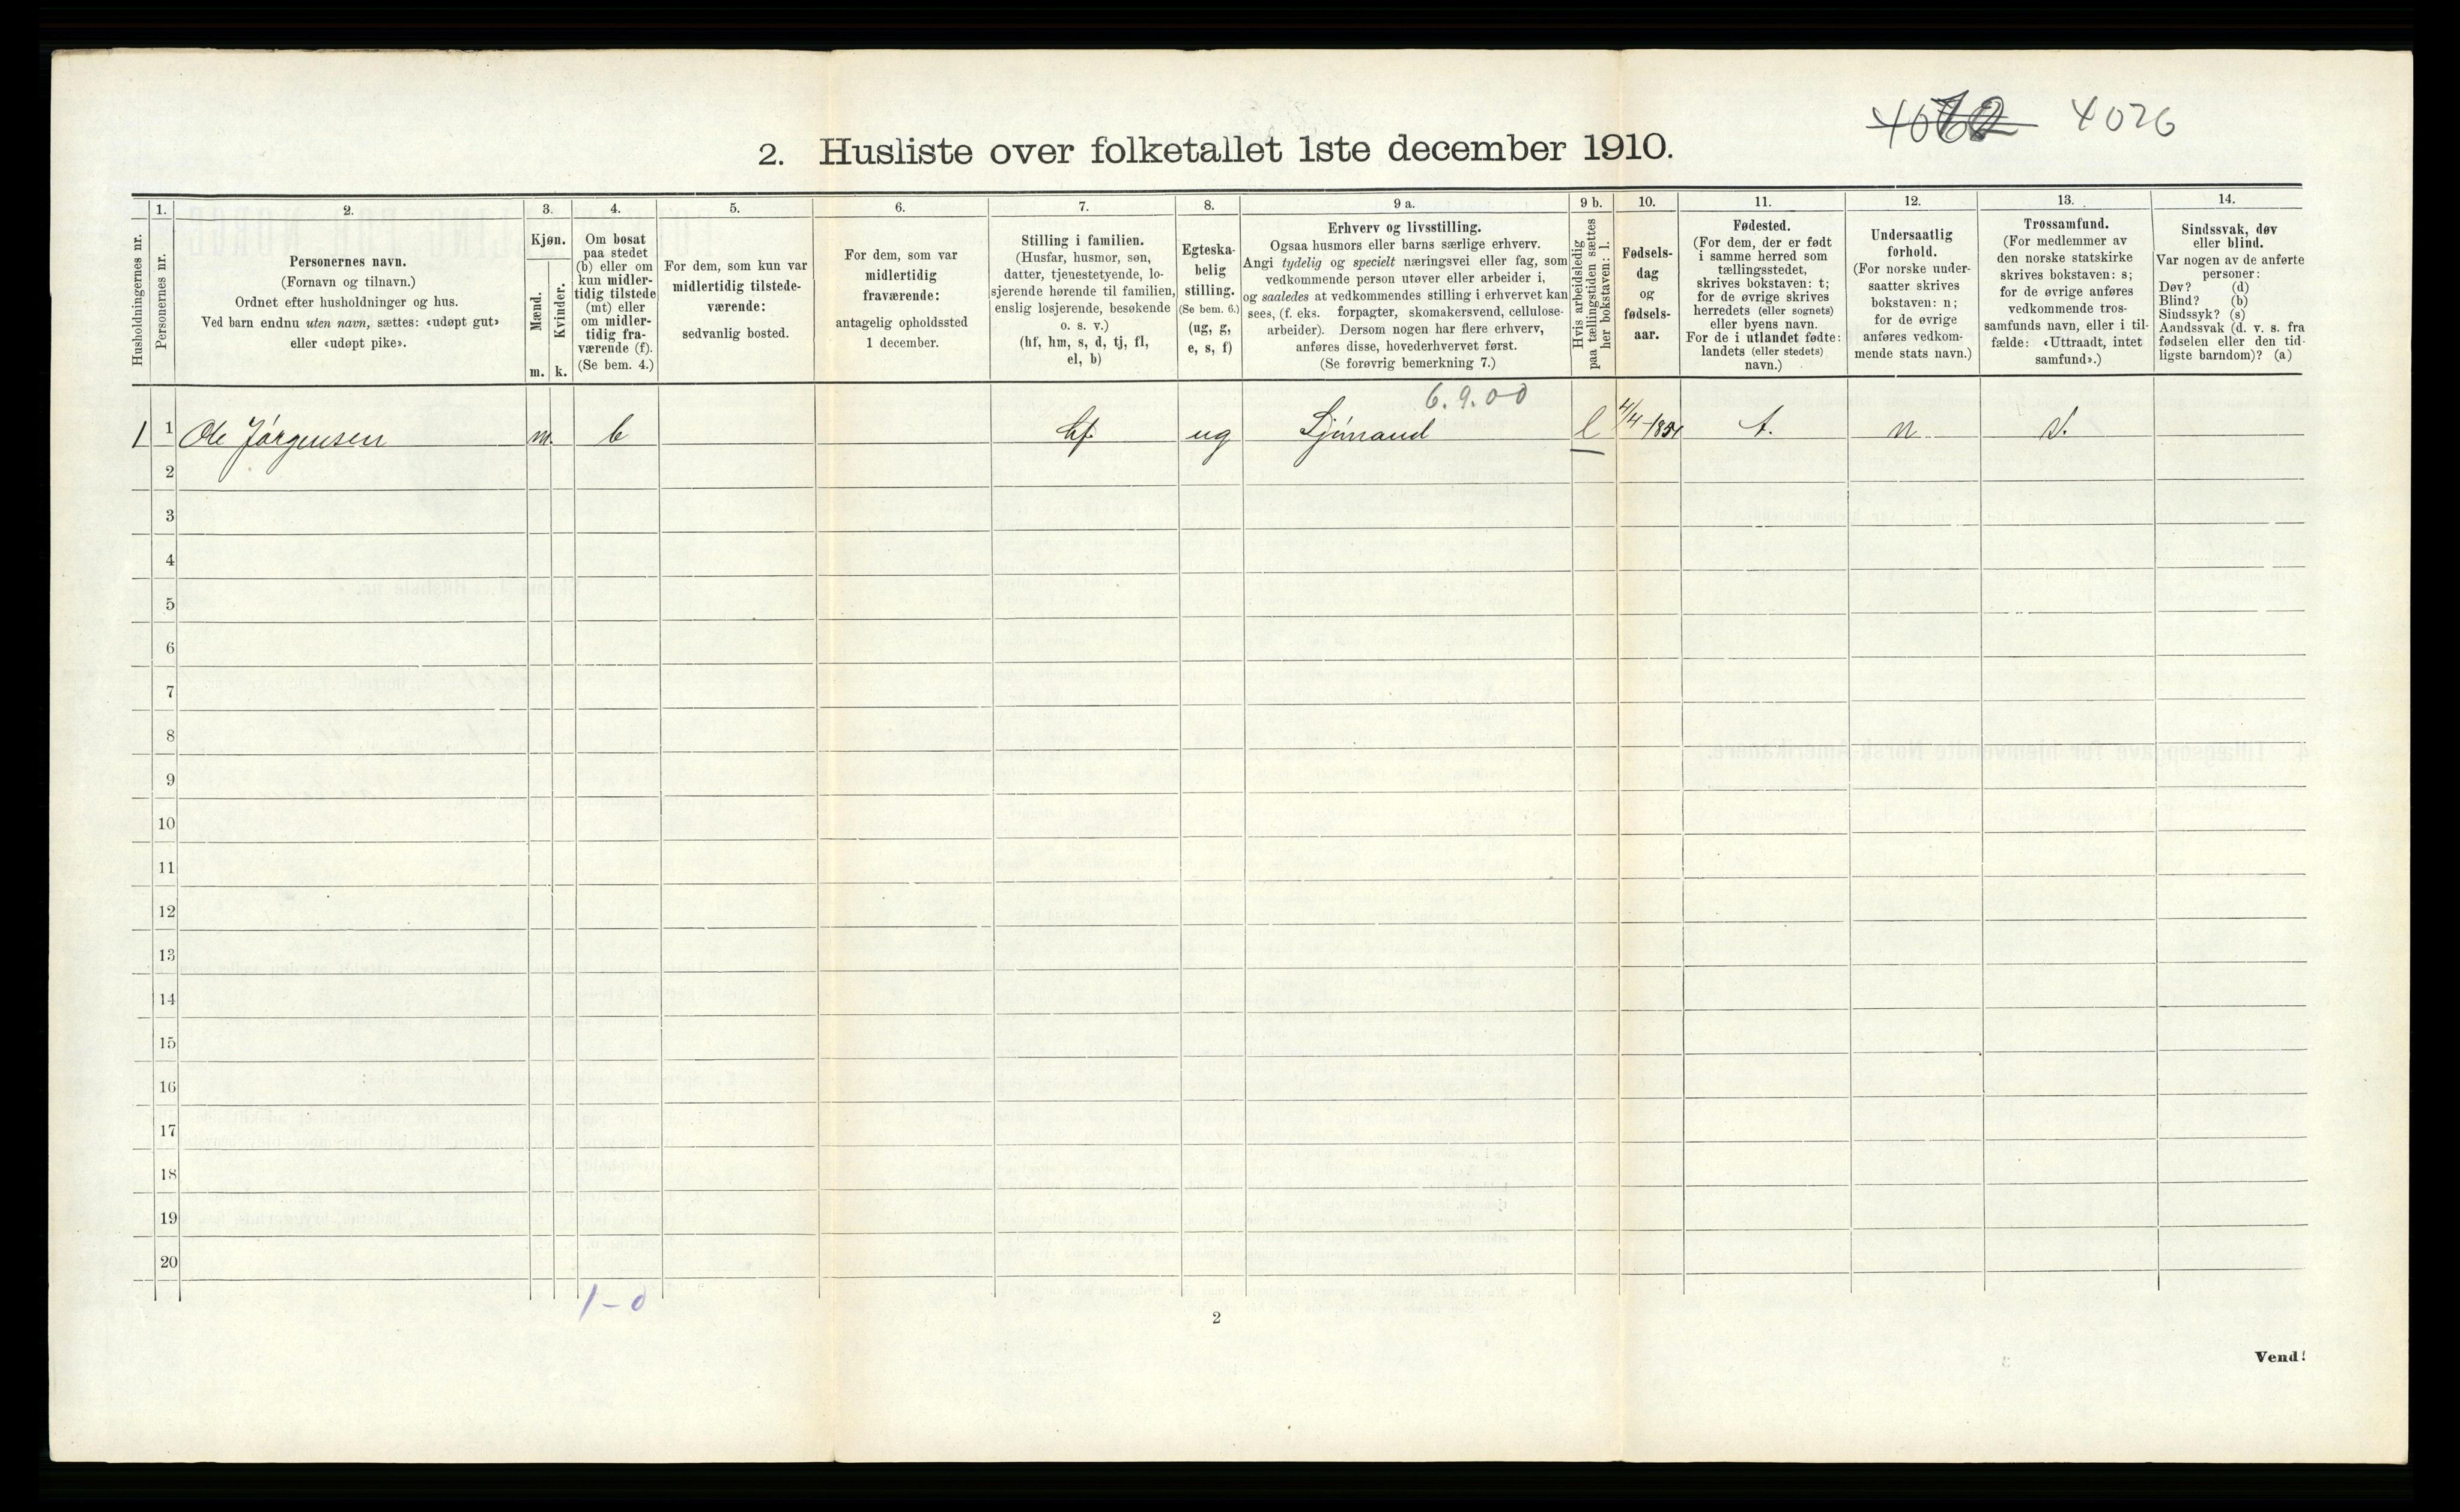 4026
2. Husliste over folketallet 1ste december 1910.
Husholdningernes nr.
1.
Personernes nr.
2.
Personernes navn.
(Fornavn og tilnavn.)
Ordnet efter husholdninger og hus.
Ved barn endnu uten navn, sættes: «udøpt gut»
eller «udøpt pike».
3.
Kjøn.
Mænd.
Kvinder.
m. k.
4.
Om bosat
paa stedet
(b) eller om
kun midler-
tidig tilstede
(mt) eller
om midler-
tidig fra-
værende (f).
(Se bem. 4.)
5.
For dem, som kun var
midlertidig tilstede-
værende:
sedvanlig bosted.
6.
For dem, som var
midlertidig
fraværende:
antagelig opholdssted
1 december.
7.
Stilling i familien.
(Husfar, husmor, søn,
datter, tjenestetyende, lo-
sjerende hørende til familien,
enslig losjerende, besøkende
o. s. v.)
(hf, hm, s, d, tj, fl,
el, b)
8.
Egteska-
belig
stilling.
(Se bem. 6.)
(ug, g,
e, s, f)
9 a.
Erhverv og livsstilling.
Ogsaa husmors eller barns særlige erhverv.
Angi tydelig og specielt næringsvei eller fag, som
vedkommende person utøver eller arbeider i,
og saaledes at vedkommendes stilling i erhvervet kan
sees, (f. eks. forpagter, skomakersvend, cellulose-
arbeider). Dersom nogen har flere erhverv,
anføres disse, hovederhvervet først.
(Se forøvrig bemerkning 7.)
9 b.
Hvis arbeidsledig
paa tællingstiden sættes
her bokstaven: l.
10.
Fødsels-
dag
og
fødsels-
aar.
11.
Fødested.
(For dem, der er født
i samme herred som
tællingsstedet,
skrives bokstaven: t;
for de øvrige skrives
herredets (eller sognets)
eller byens navn.
For de i utlandet fødte:
landets (eller stedets)
navn.)
12.
Undersaatlig
forhold.
(For norske under-
saatter skrives
bokstaven: n;
for de øvrige
anføres vedkom-
mende stats navn.)
13.
Trossamfund.
(For medlemmer av
den norske statskirke
skrives bokstaven: s;
for de øvrige anføres
vedkommende tros-
samfunds navn, eller i til-
fælde: «Uttraadt, intet
samfund».)
14.
Sindssvak, døv
eller blind.
Var nogen av de anførte
personer:
Døv? (d)
Blind? (b)
Sindssyk? (s)
Aandssvak (d. v. s. fra
fødselen eller den tid-
ligste barndom)? (a)
6.9.00
1 1 Ole Jørgensen m. b hf. ug Sjømand l 4/4-1854 t. n s.
2
3
4
5
6
7
8
9
10
11
12
13
14
15
16
17
18
19
20
1-0
2
Vend!